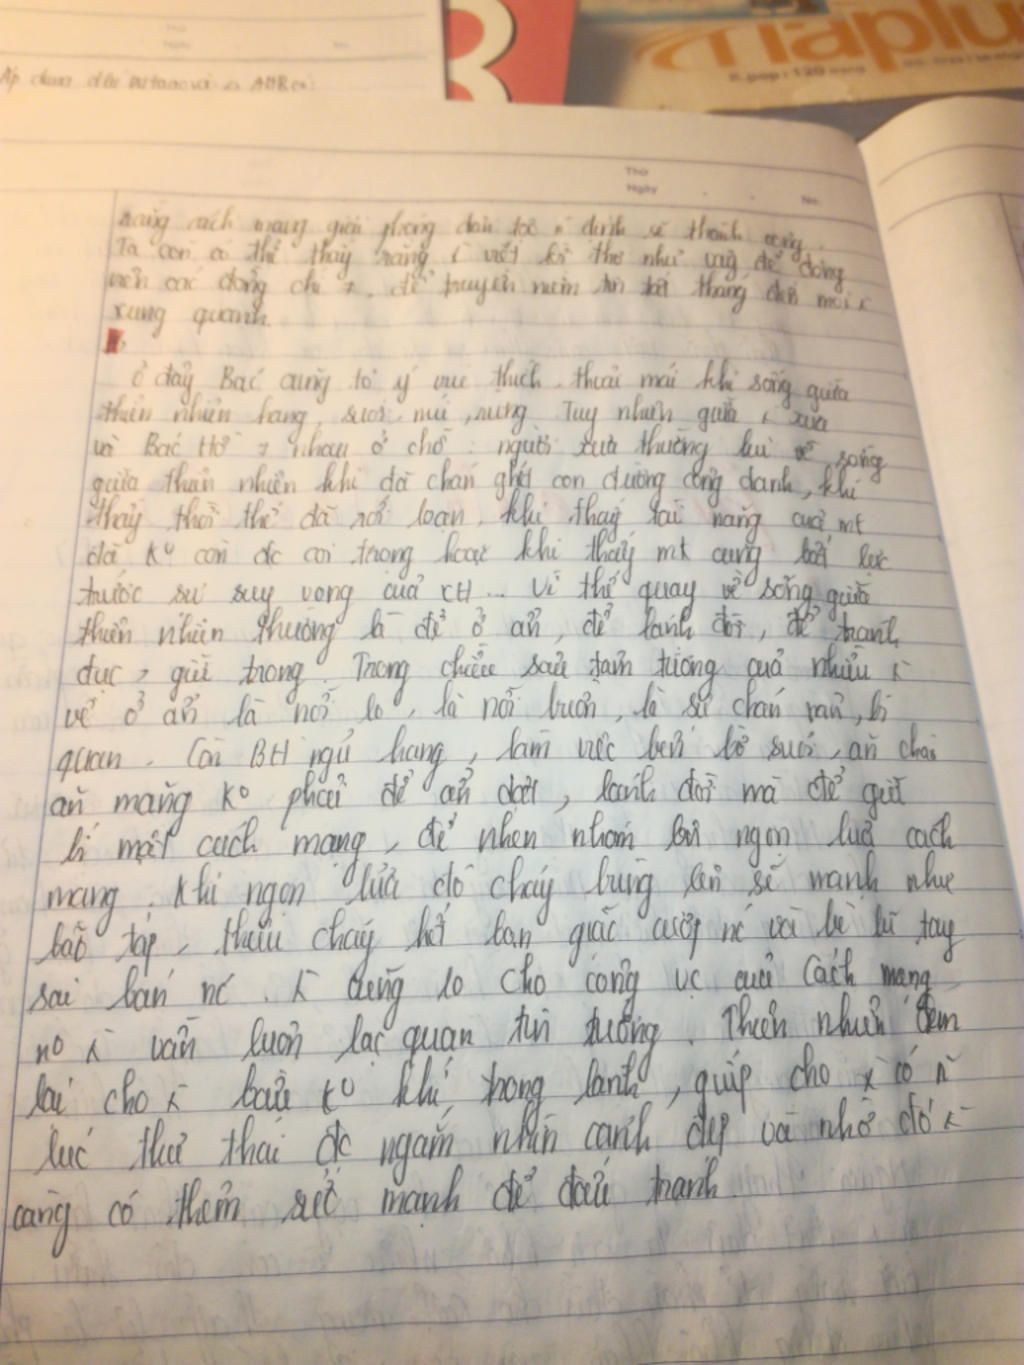 Áp dụng
3
maplu
120 trang
Thứ
Ngày
No.
Thứ
Ngày
No.
rằng cách mạng giải phóng dân tộc nhất định sẽ thành công.
Ta còn có thể thấy rằng viết bài thơ như vậy để động
viên các đồng chí để truyền niềm tin tất thắng đến mọi
xung quanh.
Ở đây Bác cũng tỏ ý vui thích, thoải mái khi sống giữa
thiên nhiên hang, suối, núi, rừng. Tuy nhiên giữa xưa
và Bác Hồ ≠ nhau ở chỗ: người xưa thường lui về sống
giữa thiên nhiên khi đã chán ghét con đường công danh, khi
thấy thời thế đã rối loạn, khi thấy tài năng của mt
đã ko còn đc coi trọng hoặc khi thấy mt cũng bất lực
trước sự suy vong của XH... Vì thế quay về sống giữa
thiên nhiên thường là để ở ẩn, để lánh đời, để tránh
đục, giữ trong. Trong chiều sâu tâm tưởng của nhiều
về ở ẩn là nỗi lo, là nỗi buồn, là sự chán nản, bi
quan. Còn BH ngủ hang, làm việc bên bờ suối, ăn cháo
ăn măng ko phải để ẩn dật, lánh đời mà để giữ
bí mật cách mạng, để nhen nhóm lên ngọn lửa cách
mạng. Khi ngọn lửa đó cháy bùng lên sẽ mạnh như
bão táp, thiêu cháy hết bọn giặc cướp nc và bè lũ tay
sai bán nc. cũng lo cho công vc của Cách mạng
vẫn luôn lạc quan tin tưởng. Thiên nhiên đem
lại cho bầu ko khí trong lành, giúp cho có
lúc thư thái đc ngắm nhìn cảnh đẹp và nhờ đó
càng có thêm sức mạnh để đấu tranh